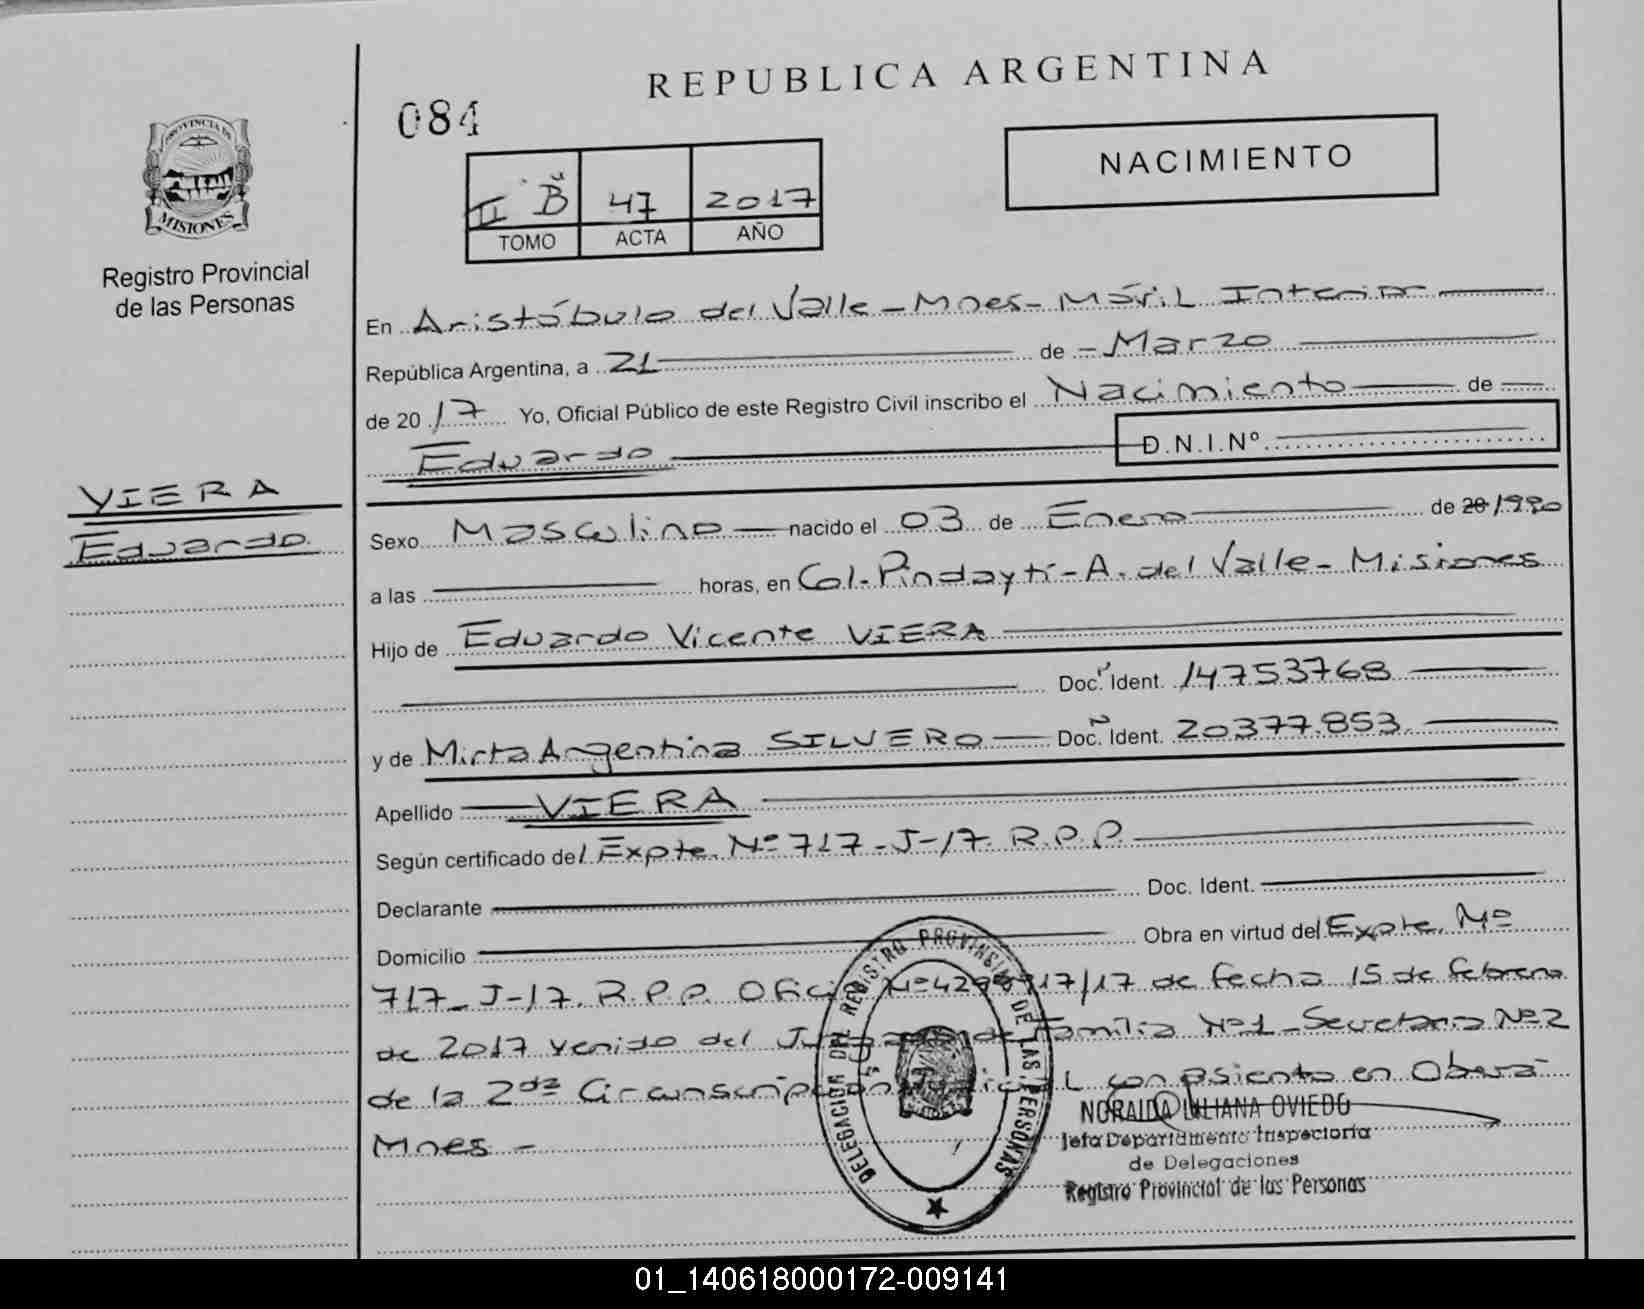 REPUBLICA ARGENTINA
084
NACIMIENTO
II B 47 2017
TOMO ACTA AÑO
PROVINCIA DE
MISIONES
Registro Provincial
de las Personas
En Aristóbulo del Valle - Mnes - Móvil Interior
República Argentina, a 21 de - Marzo
de 2017 Yo, Oficial Público de este Registro Civil inscribo el Nacimiento de
Eduardo D.N.I.Nº
VIERA
Eduardo
Sexo Masculino nacido el 03 de Enero de 20
a las horas, en Col. Pindaytí - A. del Valle - Misiones
Hijo de Eduardo Vicente VIERA
Doc. Ident. 14753768
y de Mirta Argentina SILVERO Doc. Ident. 20377.853
Apellido VIERA
Según certificado del Expte. Nº 717-J-17. R.P.P.
Declarante Doc. Ident.
Domicilio Obra en virtud del Expte. Nº
717-J-17. R.P.P. Oficio Nº /17 de fecha 15 de febrero
de 2017 venido del Juzgado de Familia Nº1 - Secretaria Nº2
de la 2da Circunscripción Judicial con asiento en Oberá
Mnes -
DELEGACION DEL REGISTRO PROVINCIAL DE LAS PERSONAS
NORAIDA LILIANA OVIEDO
Jefa Departamento Inspectoría
de Delegaciones
Registro Provincial de las Personas
01_140618000172-009141